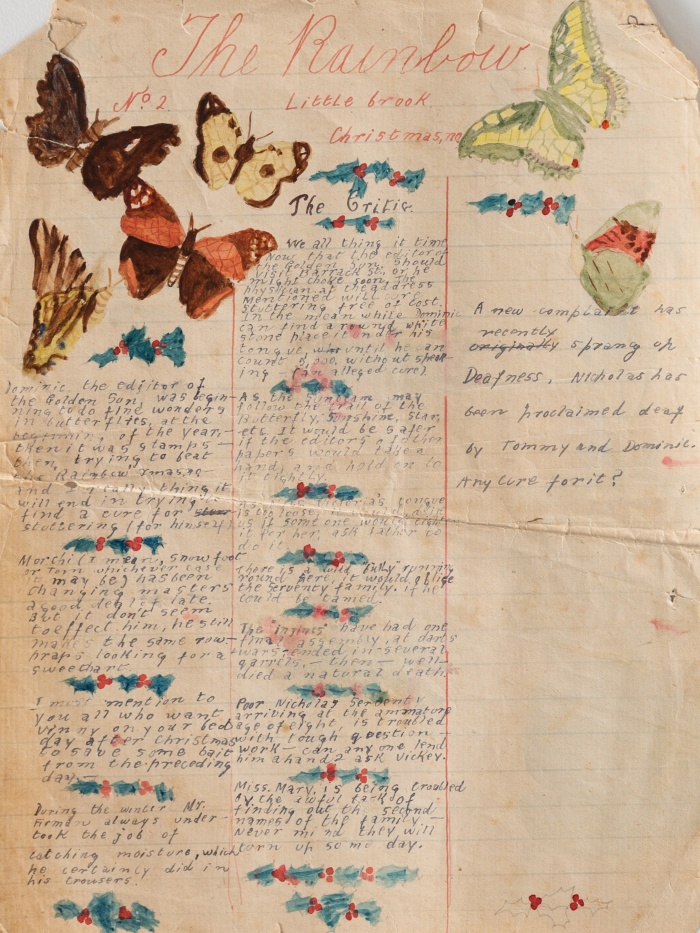 The Rainbow
No 2
Little brook
Christmas, no
Dominic, the editor of
the Golden Son, was begin-
ning to do fine wonders
in butterflies, at the
beginning of the year,-
then it was stamps -
trying to beat
the Rainbow, Xmas, no-
and I really thing it
will end in trying to
find a cure for
stuttering (for himself)
Morchi (I mean, snow foot
or Torn whichever case
it may be) has been
changing masters
a good deal of late.
But it don't seem
to effect him, he still
makes the same row-
hraps looking for a
sweethart.
I must mention to
you all who want
vinny on your beds
day after Christmas
to save some bait
from the preceding
day. -
During the winter Mr.
always under-
took the job of
catching moisture, which
he certainly did in
his trousers!
The Critic.
We all thing it time
Now that the editor of
the Golden Sun, should
visit Barrack St, or he
might choke soon, The
physician at the address
mentioned will cure
stuttering free of cost.
In the mean while Dominic
can find a round white
stone place it under his
tongue, until he can
count 6,000, without speak-
ing - (an alleged cure)
As the Sunbeam may
follow the trail of the
Butterfly, Sunshine, Star,
ect. It would be safer
if the editors of other
papers would take a
hand, and hold on to
it tightly.
tongue
is too loose,
us if some one would tighten
it for her, ask father to
do it.
There is a wild bully running
round here, it would oblige
the Serventy family, if he
could be tamed.
The "innings" have had one
final assembly, at darts
wars ended in several
qarrels, - then - well-
died a natural death.
Poor Nicholas Serventy
arriving at the ammature
age of eight, is troubled
with tough question -
work - can any one lend
him a hand? ask Vickey.
Miss. Mary, is being troubled
by the awful task of
finding out the second
names of the family. -
Never mind they will
turn up some day.
A new complaint has
recently
originally sprang up
Deafness, Nicholas has
been proclaimed deaf
by Tommy and Dominic.
Any cure for it?